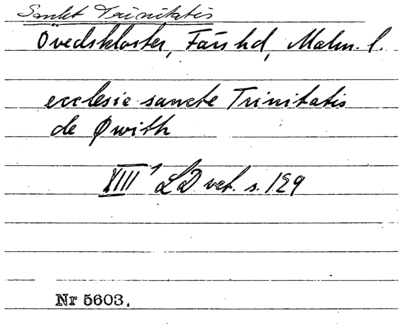 Sankt Trinitatis
Övedskloster, Färs hd, Malm. l.
ecclesie sancte Trinitatis
de Øwith
XIII¹ LD vet. s. 129
Nr 5603.